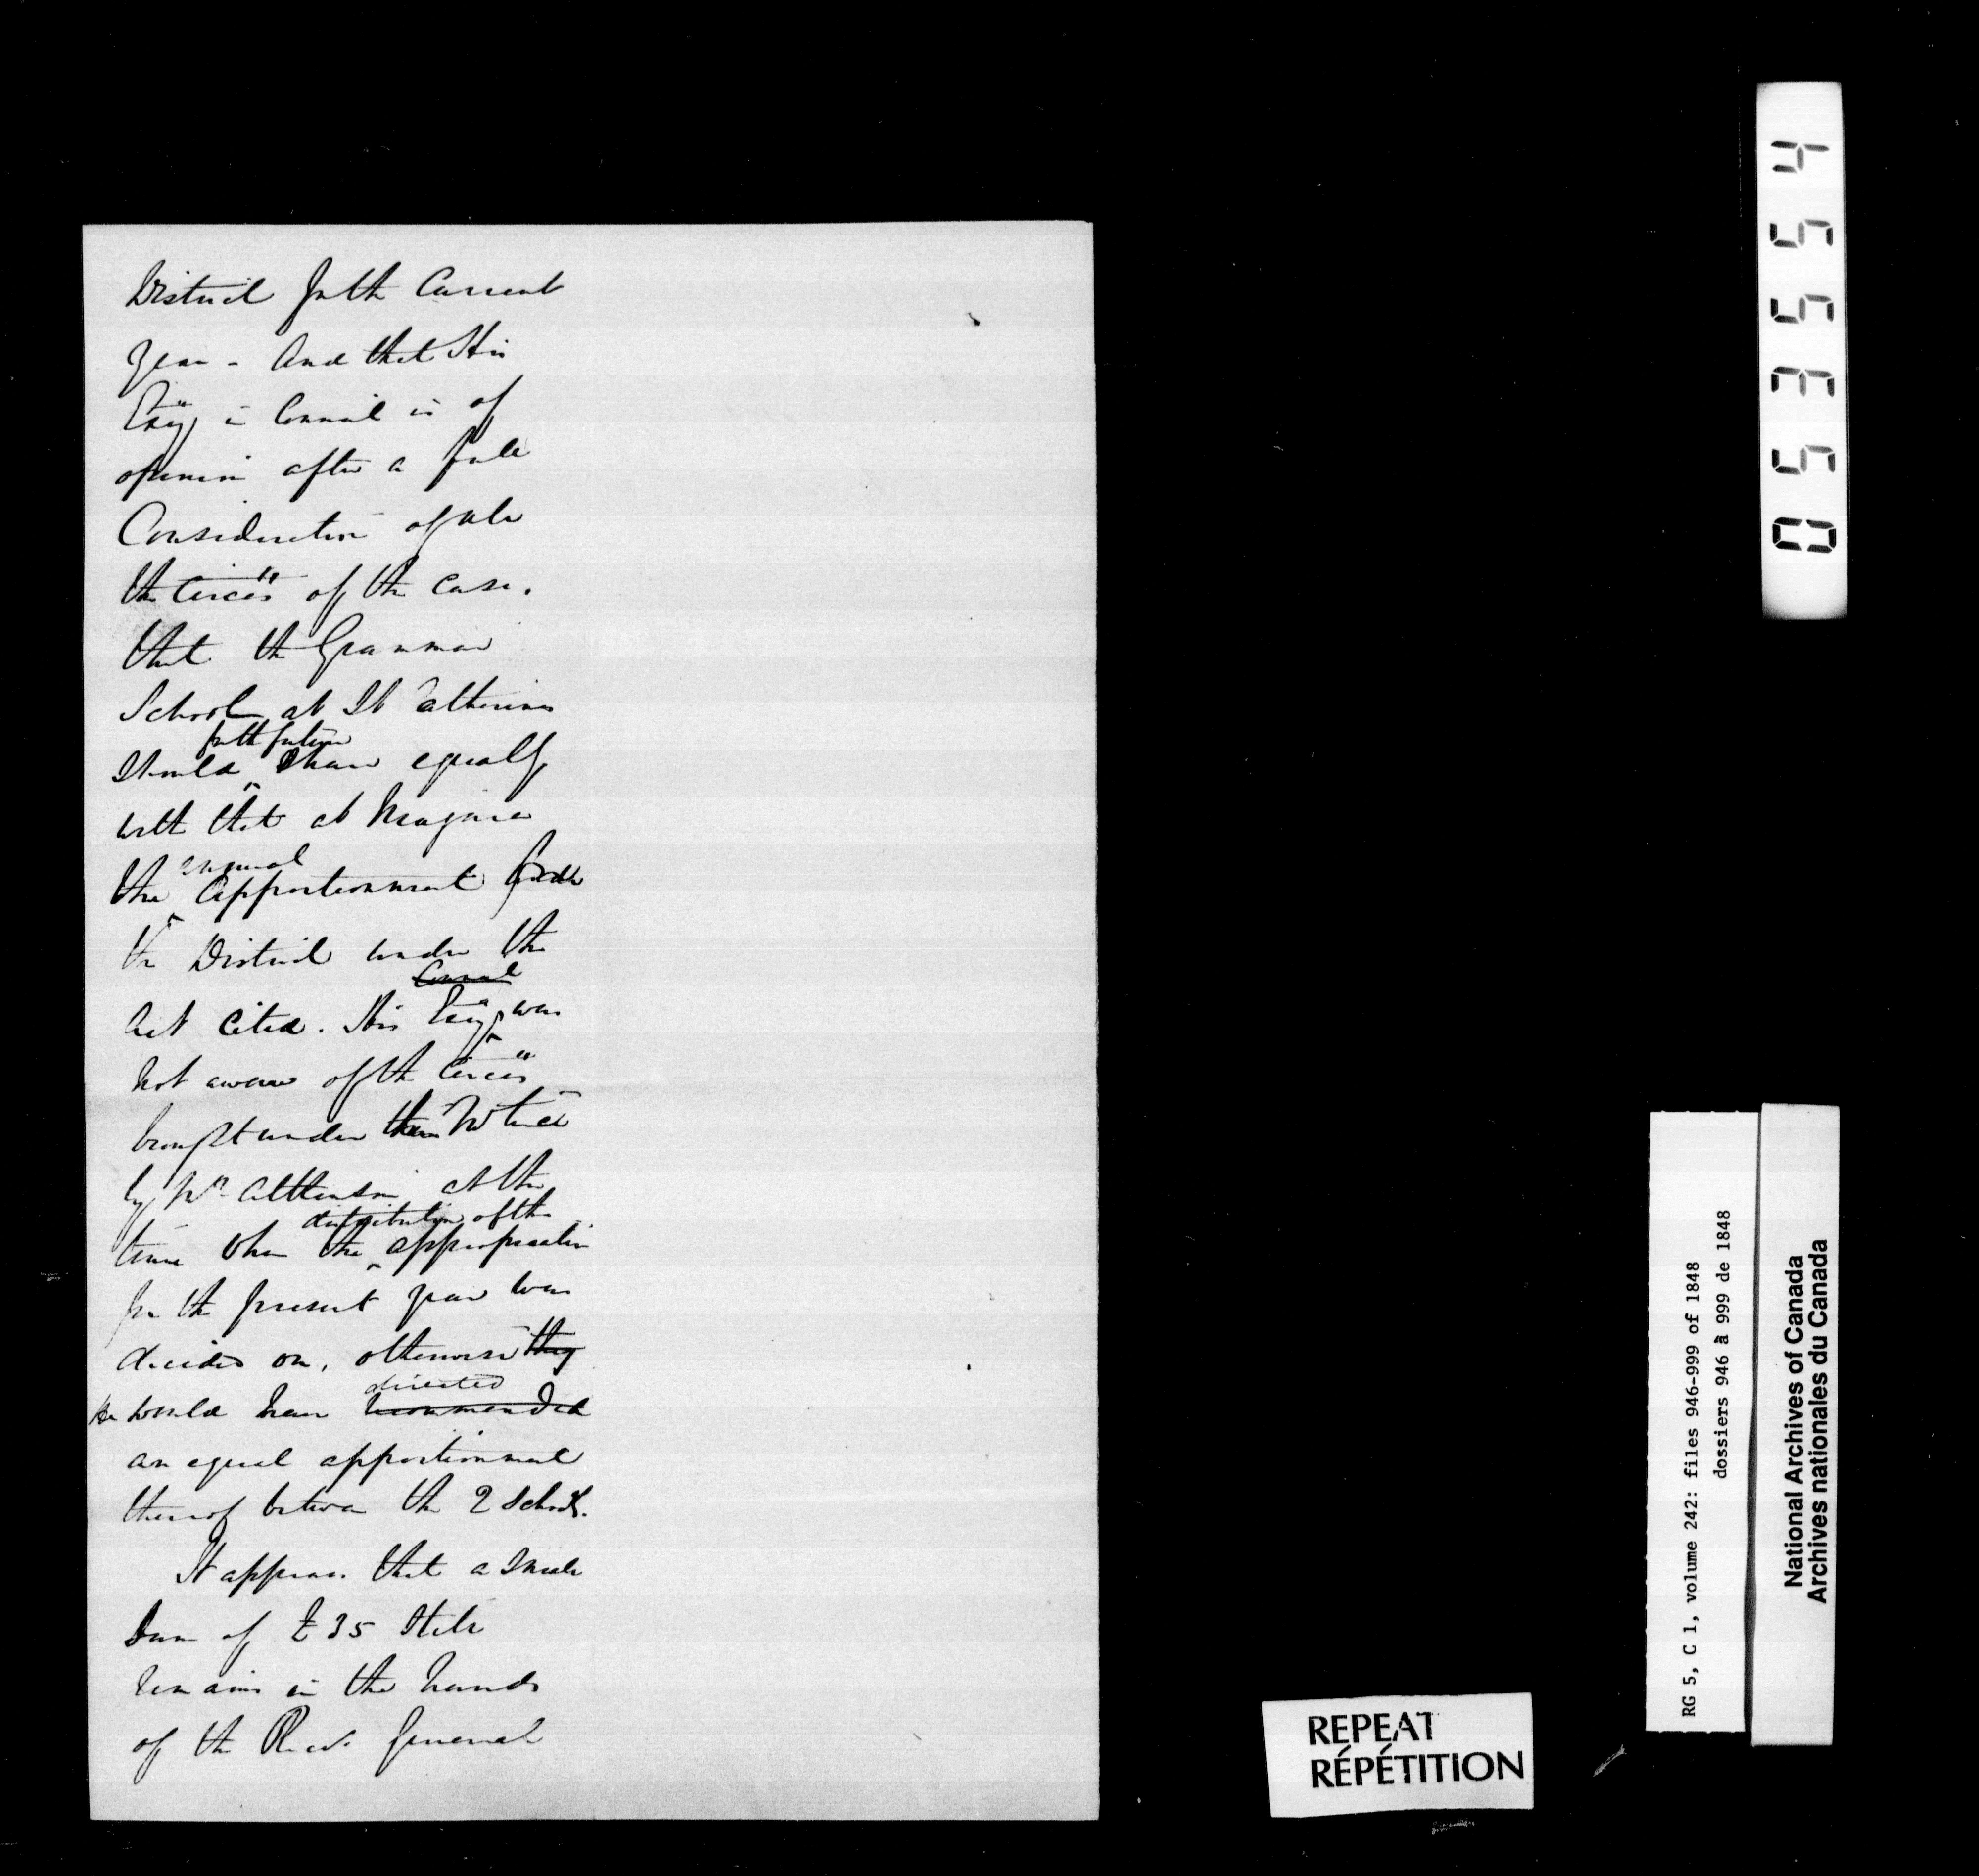 District for the Current
year - And that His
Excy in Council is of
opinion after a full
Consideration of all
the Circes of the case.
that the Grammar
School at St Catherines
for the future
should share equally
with that at Niagara
the annual Apportionment for
the District under the
Council
Act cited. His Excy was
not aware of the Circes
brought under their Notice
by Mr Atkinson at the
distribution of the
time when the appropriation
for the present year was
decided on, otherwise they
directed
he would have recommended
an equal apportionment
thereof between the 2 Schools.
It appears that a small
Sum of £35 Still
remains in the hands
of the Recr. General
053554
RG 5, C 1, volume 242: files 946-999 of 1848
dossiers 946 à 999 de 1848
National Archives of Canada
Archives nationales du Canada
REPEAT
RÉPÉTITION